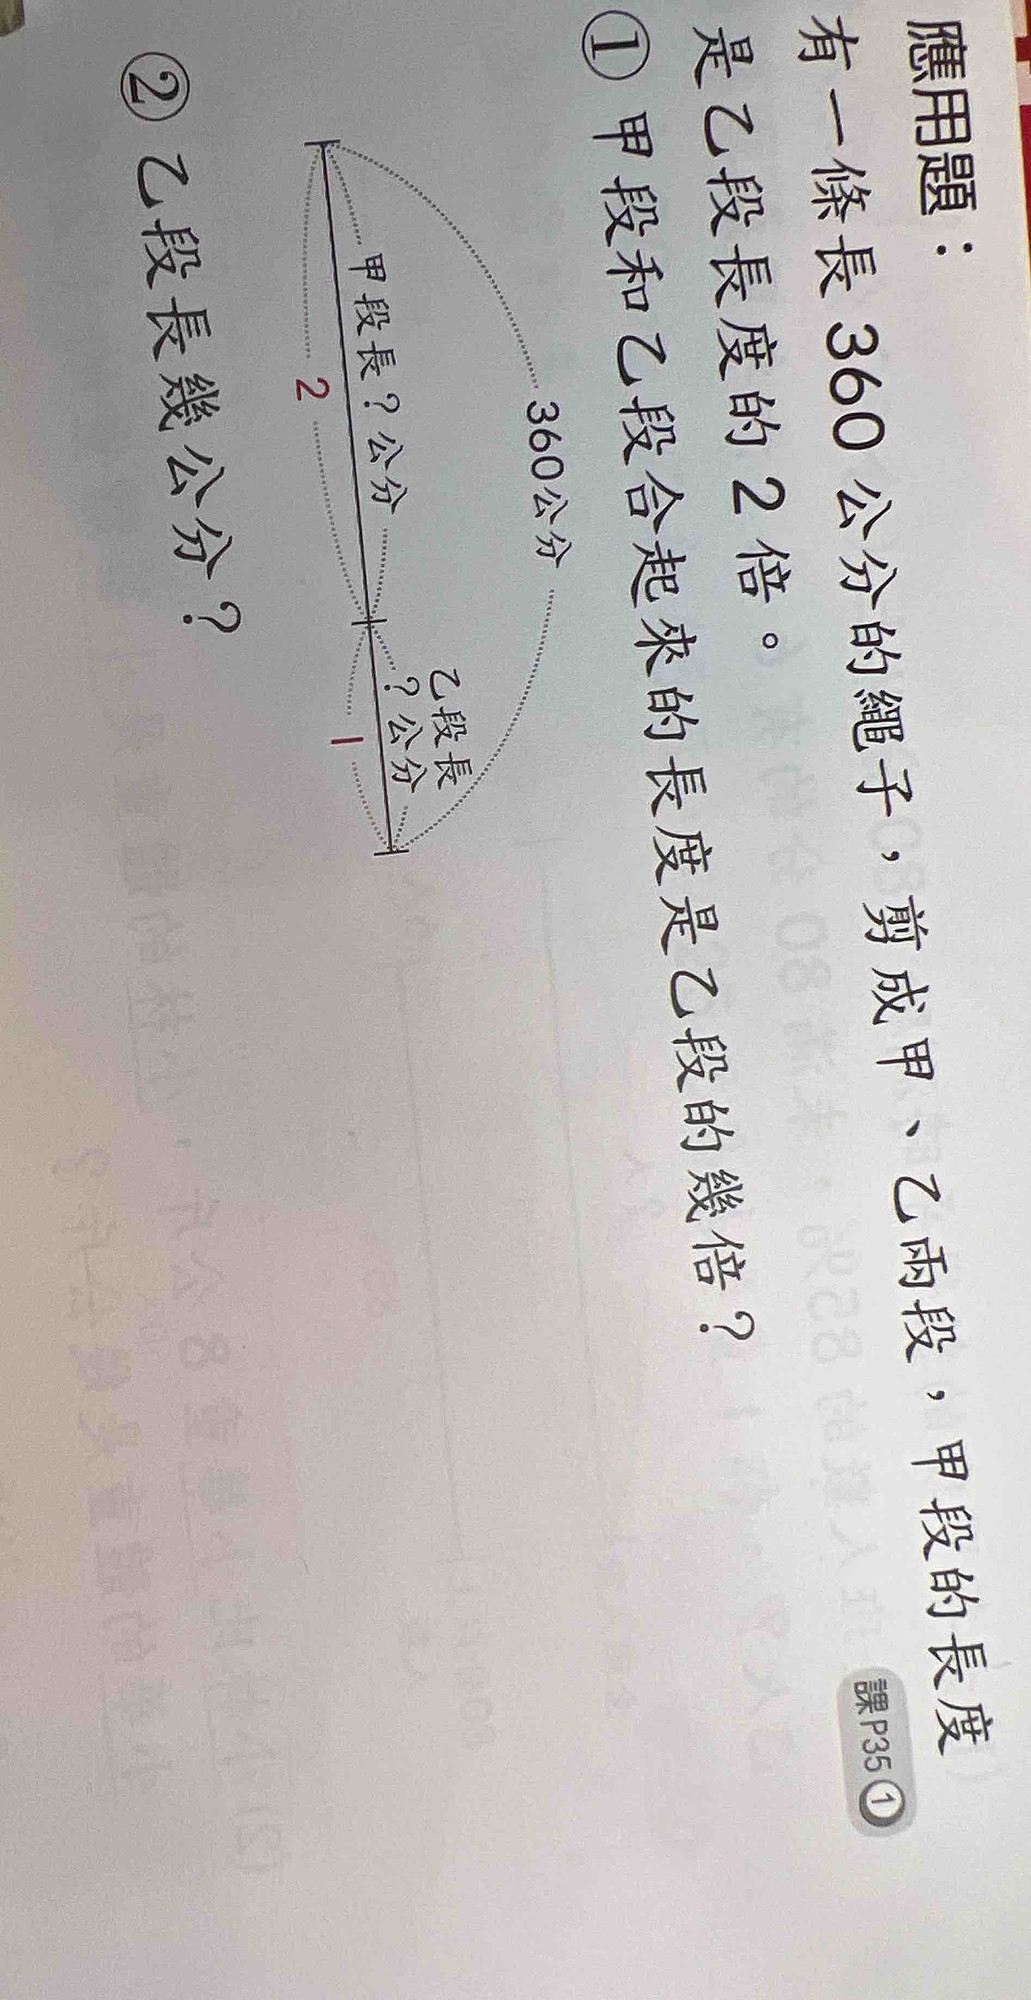 應用題：
有一條長360公分的繩子，剪成甲、乙兩段，甲段的長度
是乙段長度的2倍。
課P35①
①甲段和乙段合起來的長度是乙段的幾倍？
360公分
甲段長？公分
乙段長
？公分
2
1
②乙段長幾公分？